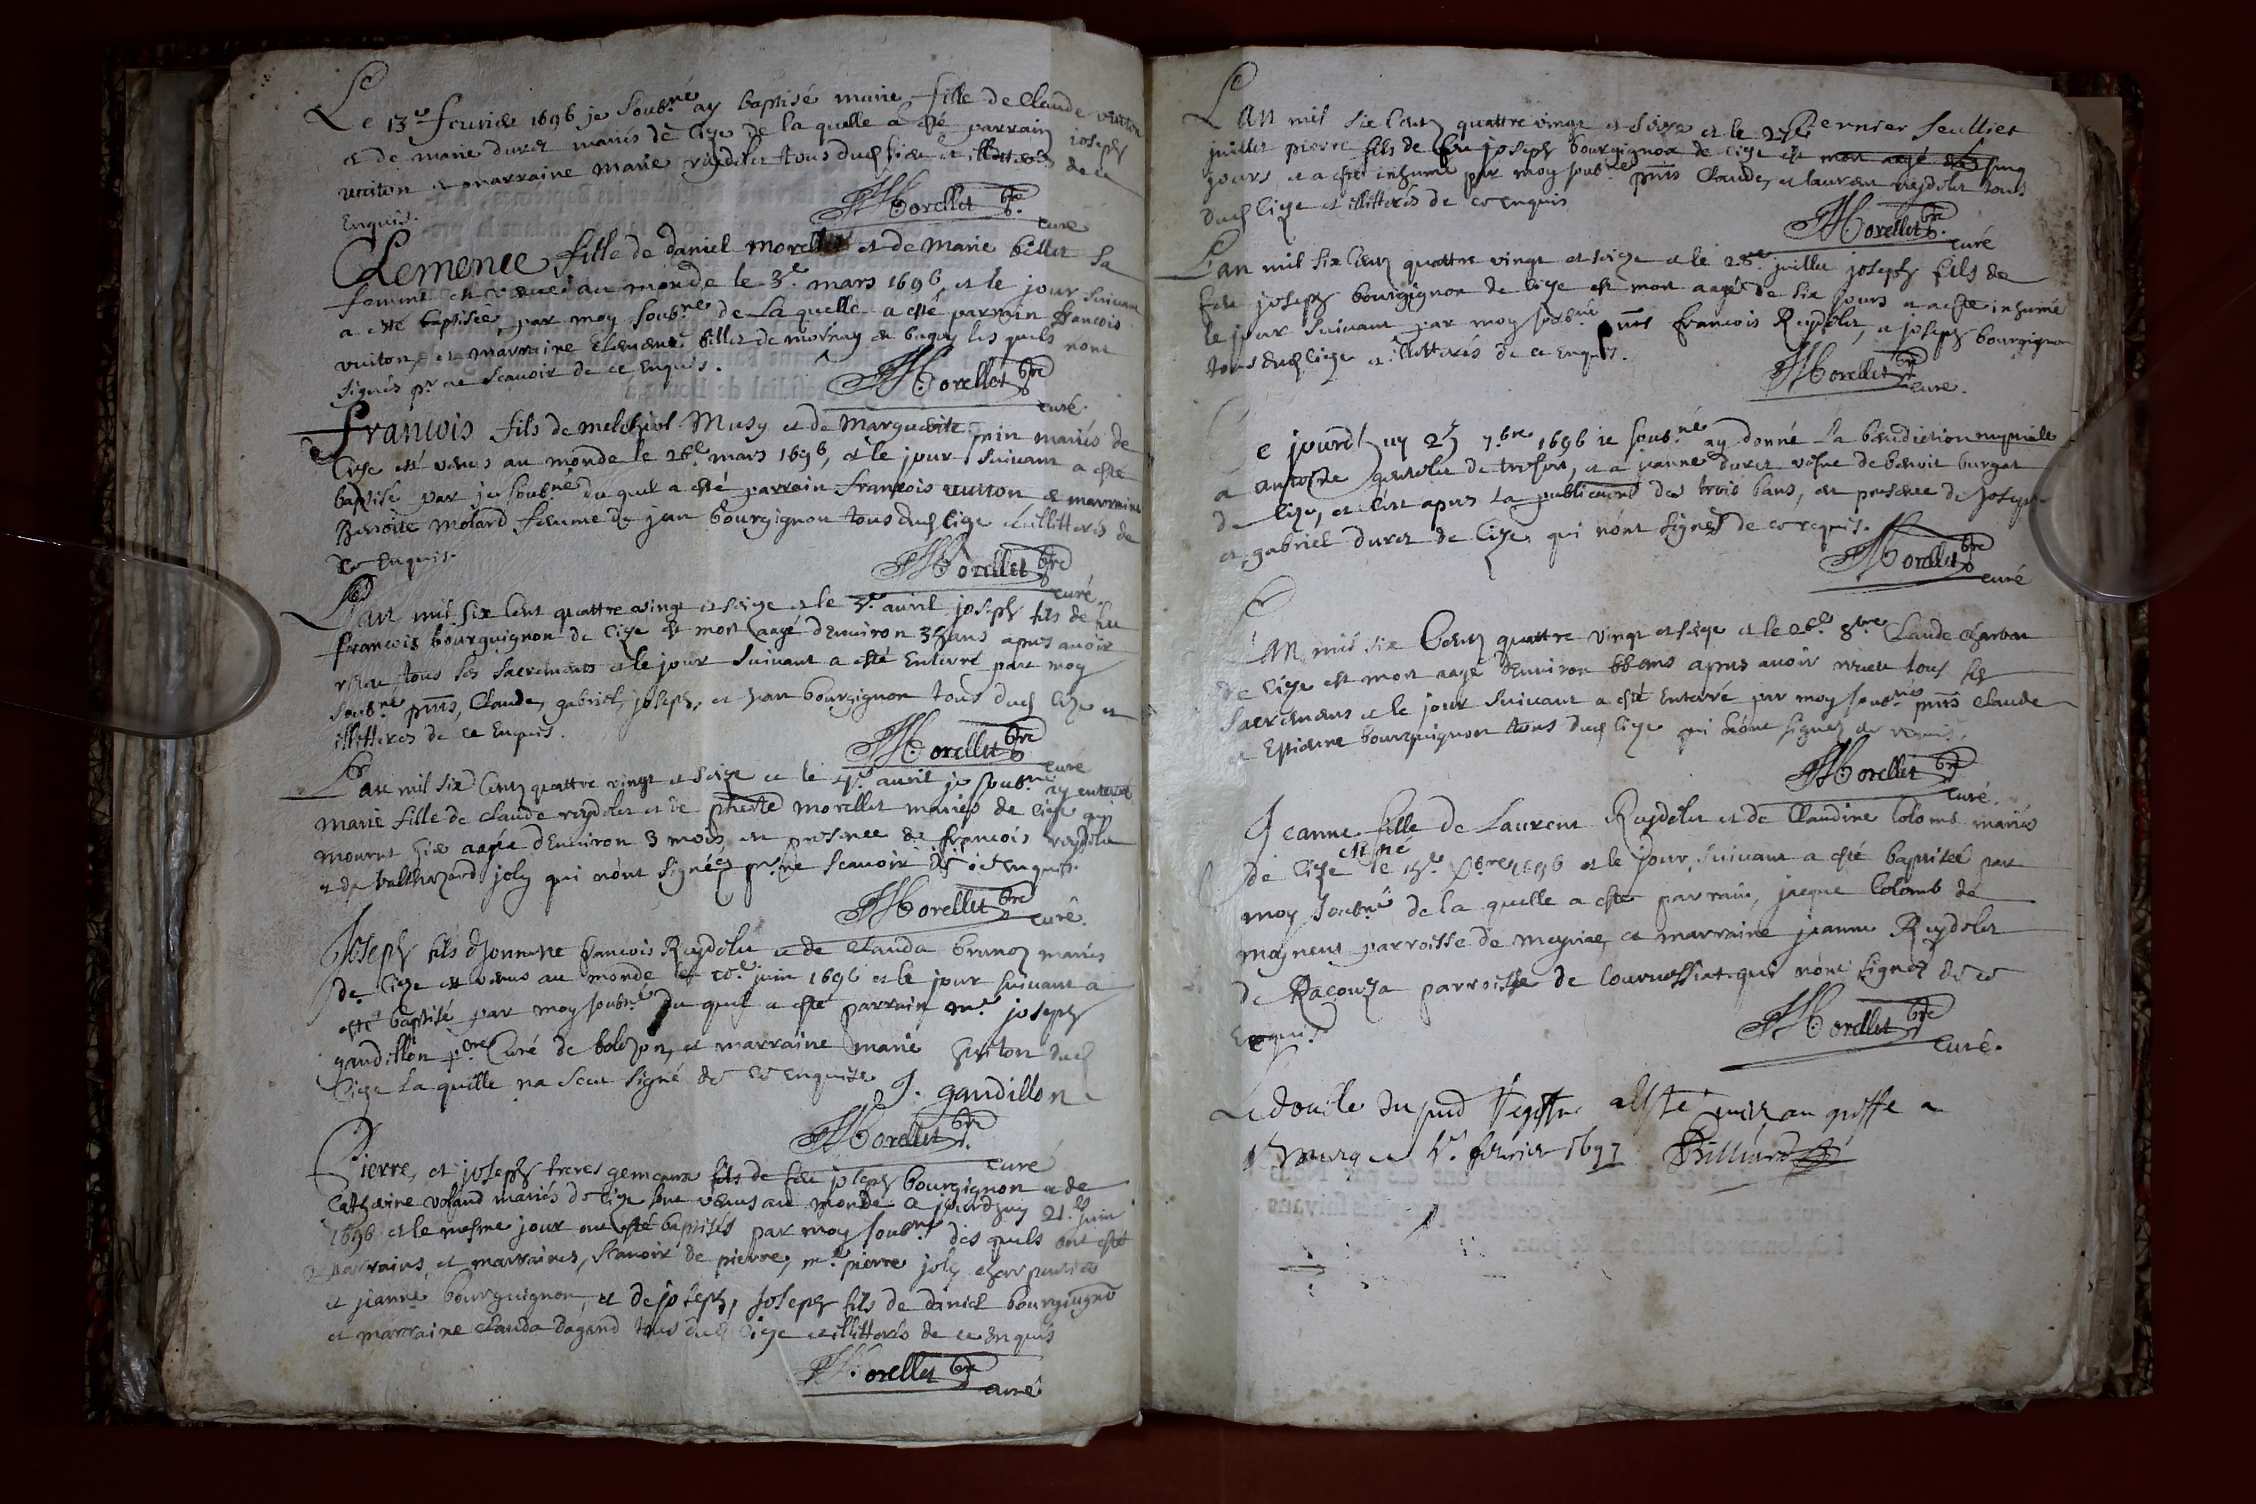 Le 13e feurier 1696 je soubné ay baptisé marie fille de Claude vuiton
et de marie duret mariés de Cize de la quelle a esté parrain joseph
vuiton et marraine marie reydelet tous dud Cize et illitterés de ce
Enquis.
Morellet pbre
curé
Clemence fille de daniel morellet et de Marie billet sa
femme est venue au monde le 3e mars 1696, et le jour suivant
a esté baptisée par moy soubné de La quelle a esté parrain francois
vuiton, et marraine clemence billet de mornay en bugey les quels nont
signés pr ne scauoir de ce Enquis.
Morellet pbre
curé.
francois fils de melchiol Musy et de Marguerite min mariés de
Cize est venus au monde le 26e mars 1696, et le jour suivant a esté
baptisé par je soubné du quel a esté parrain francois vuiton et marraine
Benoite molard femme de jean bourgignon tous dud Cize et illitterés de
ce Enquis.
Morellet pbre
curé
L'an mil six Cent quattre vingt et seize et le 3e avril joseph fils de feu
francois bourguignon de Cize est mort aagé d'Enuiron 35 ans apres auoir
reçu tous ses sacremens et le jour suivant a esté Enterré par moy
soubné pnts, Claude, gabriel, joseph, et jean bourgignon tous dud Cize et
illitterés de ce Enquis.
Morellet pbre
curé
L'an mil six Cent quattre vingt et seize et le 4e avril je soubné ay enterré
marie fille de claude reydelet et de pherte morellet mariés de Cize qui
mourut hier aagée d'Enuiron 3 mois en presence de francois reydelet
et de balthazard joly qui n'ont signés pr ne scauoir de ce Enquis.
Morellet pbre
curé.
Joseph fils d'honneste francois Reydelet et de Clauda brunet mariés
de Cize est venus au monde le 10e juin 1696 et le jour suivant a
esté baptisé par moy soubné du quel a esté parrain mre joseph
gaudillon pbre Curé de bolozon, et marraine marie vuiton dud
Cize La quelle na sceu signé de ce enquise
J. gaudillon
Morellet pbre
curé
Pierre, et joseph freres gemeaux fils de feu joseph bourgignon et de
Catherine voland mariés de Cize sont venus au monde a jourdhuy 21e juin
1696 et le mesme jour ont esté baptisés par moy soubné des quels ont esté
parrains, et marraines, scauoir de pierre, mre pierre joly charpentier
et jeanne bourguignon, et de joseph, joseph fils de daniel bourguignon
et marraine Clauda dagand tous dud Cize et illitterés de ce Enquis
Morellet pbre
curé
dernier feuillet
L'An mil six Cent quattre vingt et seize et le 27e
juillet pierre fils de feu joseph bourgignon de Cize est mort aagé de cinq
jours, et a esté inhumé par moy soubné pnts Claude, et laurent reydelet tous
dud Cize et illitterés de ce enquis
Morellet pbre
curé
L'an mil six Cent quattre vingt et seize et le 28e juillet joseph fils de
feu joseph bourgignon de Cize est mort aagé de six jours et a esté inhumé
le jour suivant par moy soubné pnts francois Reydelet, et joseph bourgignon
tous dud Cize et illitterés de ce Enquis.
Morellet pbre
curé.
Ce jourdhuy 25 7bre 1696 je soubné ay donné La benediction nuptiale
a antoine de trefort, et a jeanne duret vefve de benoit burgat
de Cize, et c'est apres La publication des trois bans, en presence de joseph
et gabriel duret de Cize qui n'ont signés de ce requis.
Morellet pbre
curé
L'An mil six Cent quattre vingt et seize et le 26e 8bre Claude Charbon
de Cize est mort aagé d'Enuiron 66 ans apres auoir receu tous ses
sacremens et le jour suivant a esté Enterré par moy soubné pnts Claude
et Estienne bourguignon tous dud Cize qui n'ont signez de requis.
Morellet pbre
curé.
Jeanne fille de Laurent Reydelet et de Claudine Colomb mariés
de Cize est né le 15e Xbre 1696 et le jour suivant a esté baptisée par
moy soubné de la quelle a esté parrain, jacque Colomb de
moyneux parroisse de meyriat, et marraine jeanne Reydelet
de Racouza parroisse de Cournossiat qui n'ont signez de ce
Enquis
Morellet pbre
Curé.
Le double du pnd Registre a esté mis au greffe a
Bourg ce 1r feurier 1697 Billiard